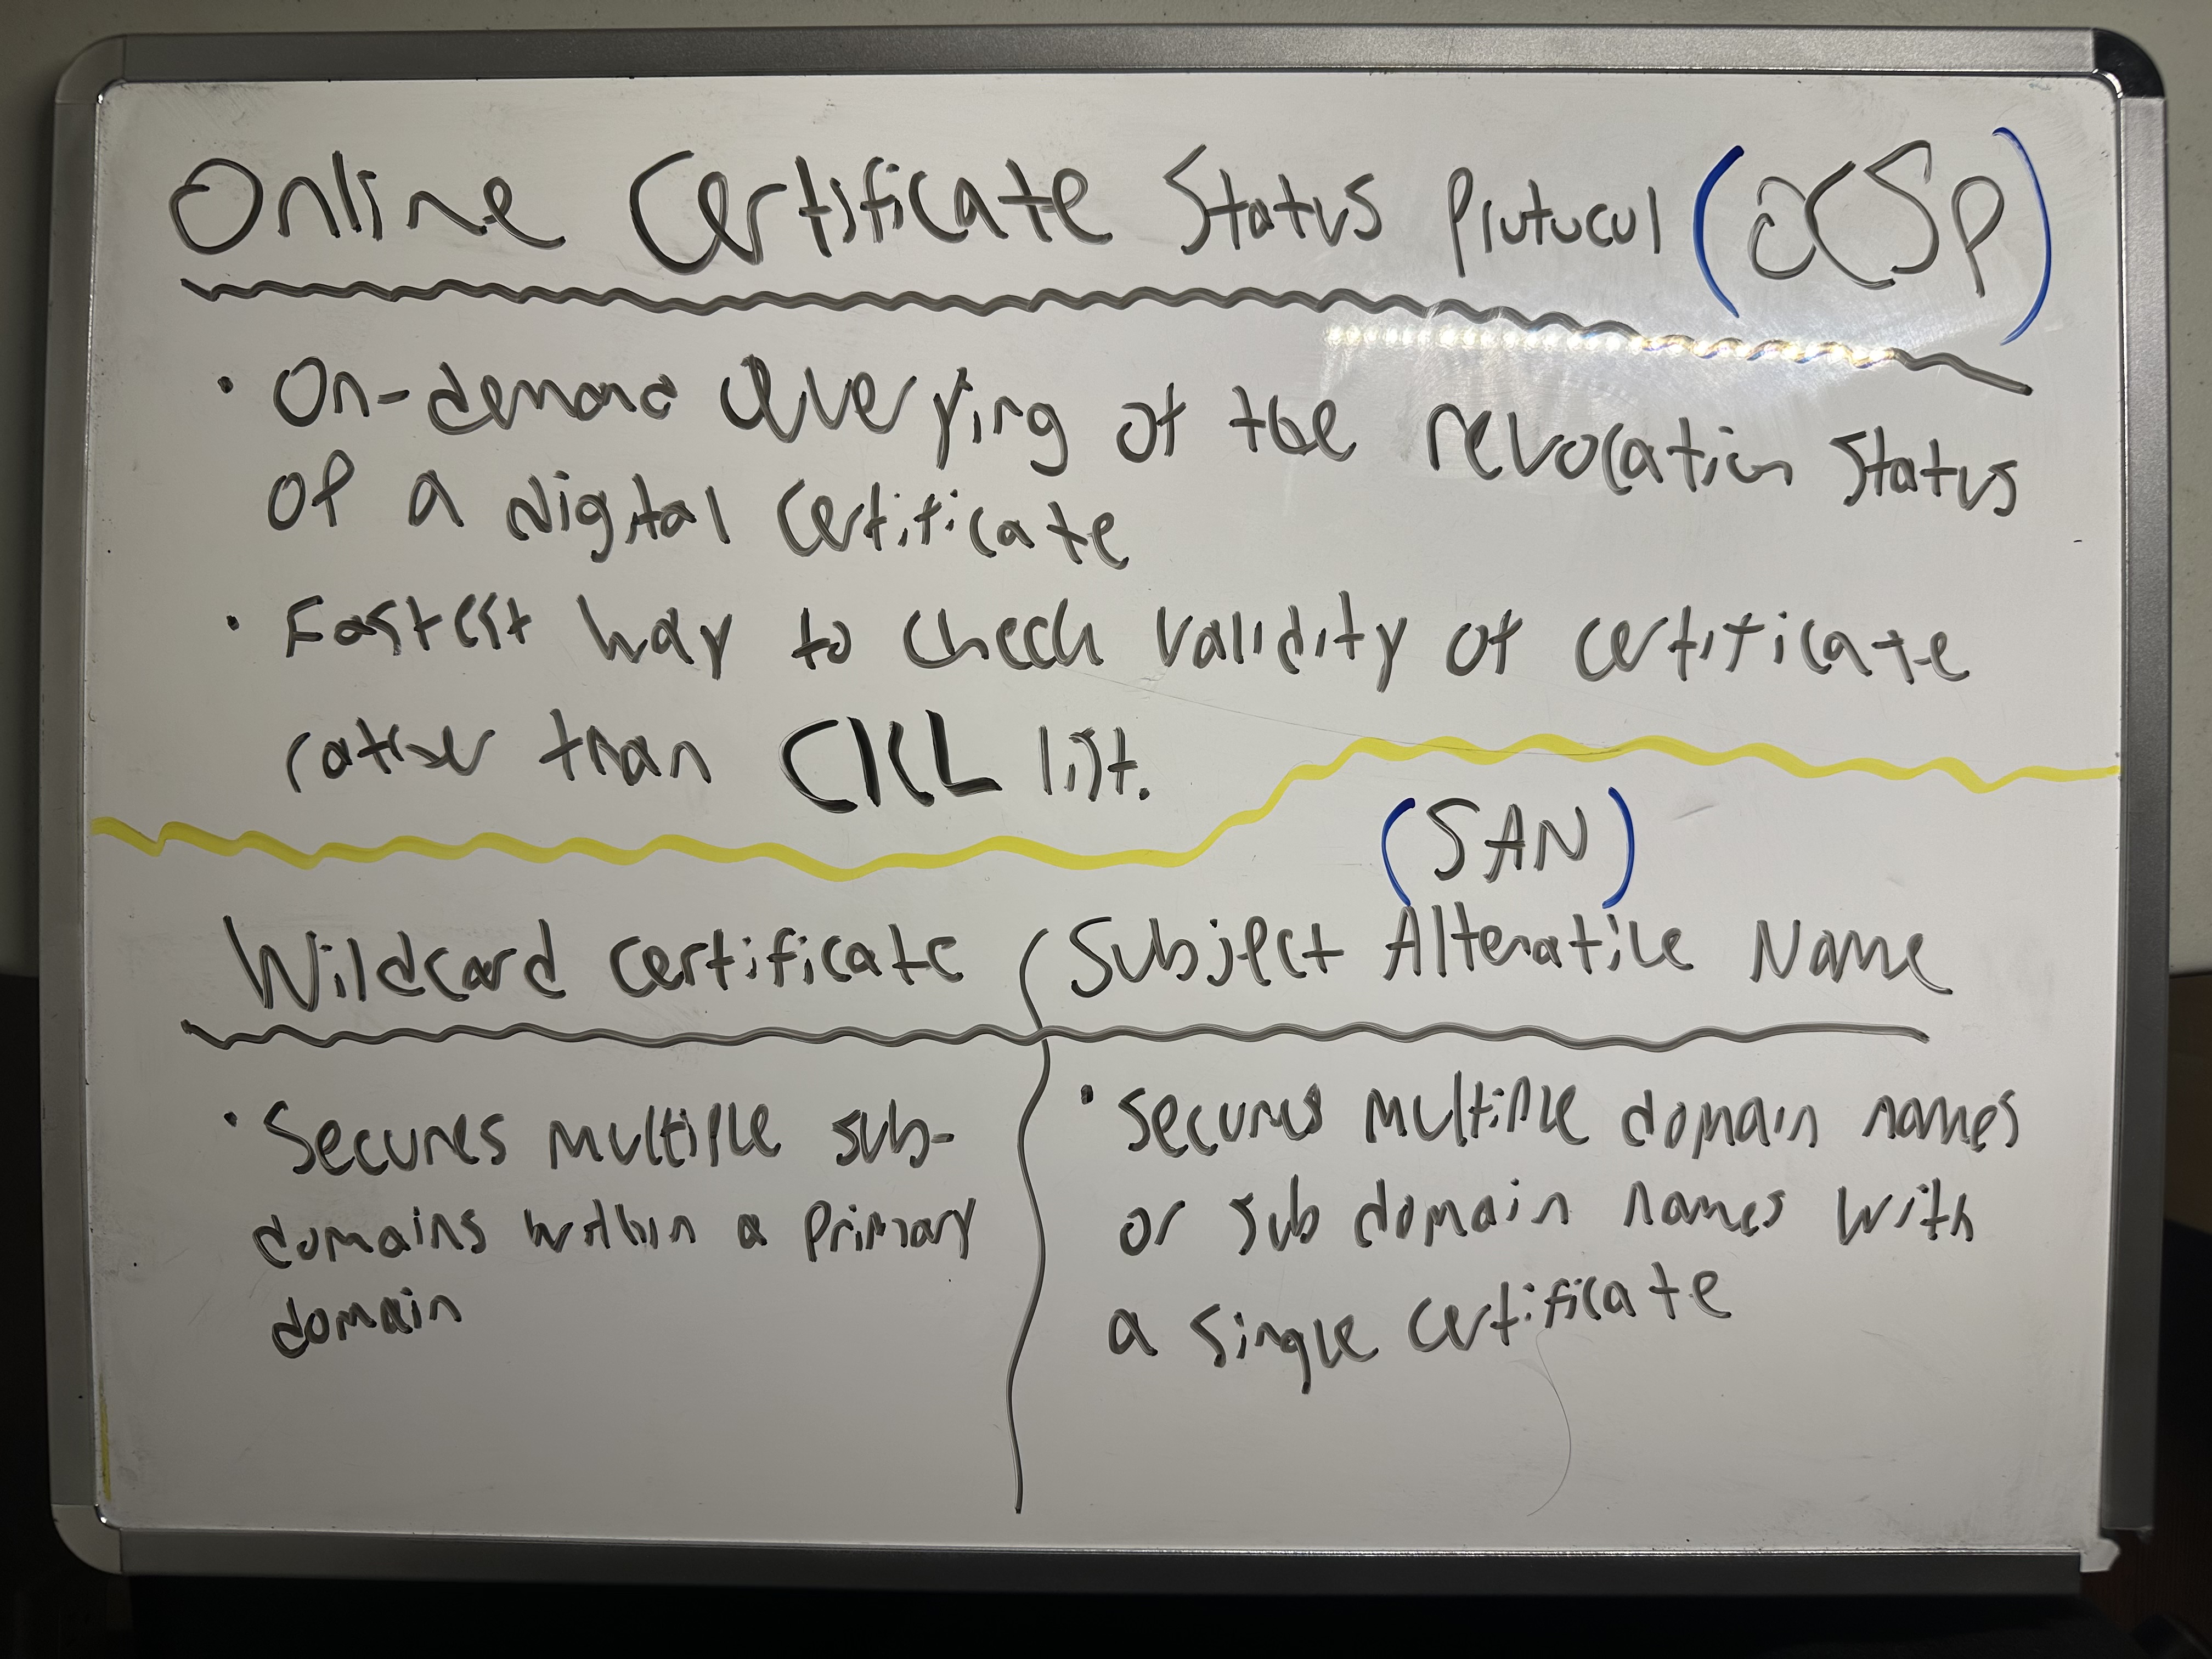 Online Certificate Status Protocol (OCSP)
• On-demand Querying of the revocation Status
of a digital Certificate
• Fastest way to check validity of certificate
rather than CRL list.
(SAN)
Wildcard Certificate
Subject Alternative Name
• Secures multiple sub-
domains within a Primary
domain
• Secures multiple domain names
or sub domain names with
a single certificate